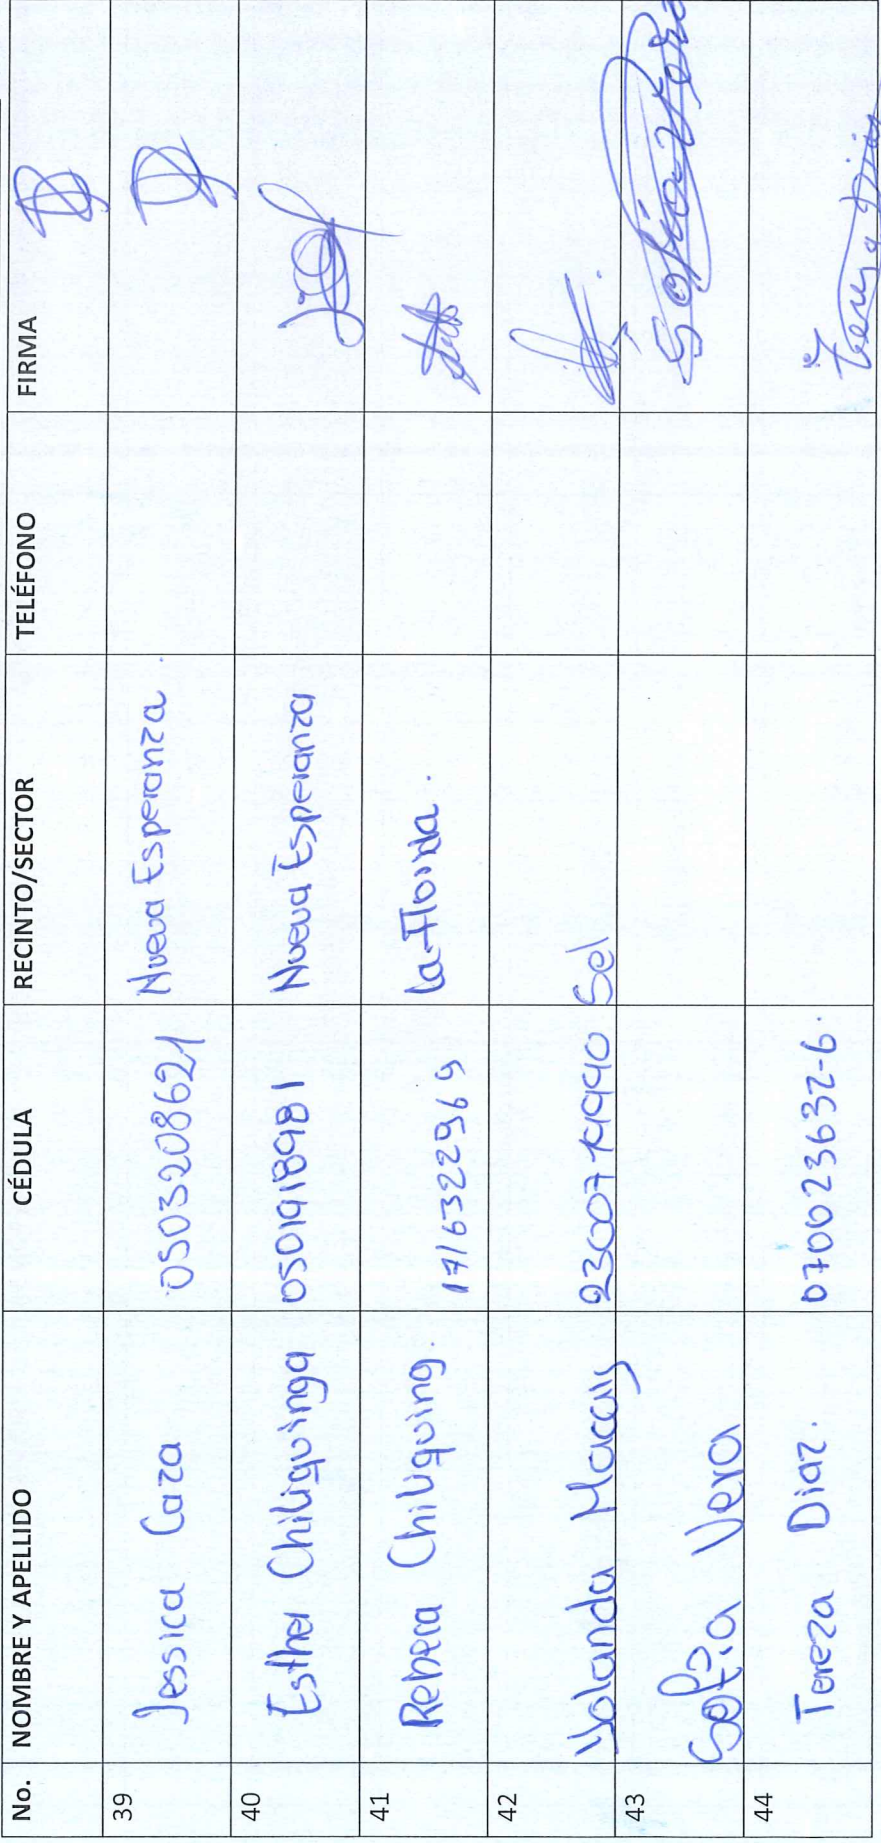 No. NOMBRE Y APELLIDO CÉDULA RECINTO/SECTOR TELÉFONO FIRMA
39 Jessica Caza 0503208621 Nueva Esperanza.
40 Esther Chiliquinga 0501918981 Nueva Esperanza
41 Rebeca Chiliquing. 1716322969 La Florida.
42 Yolanda
43 Sofia Vera Sofia Vera
44 Tereza Diaz. 070023632-6.